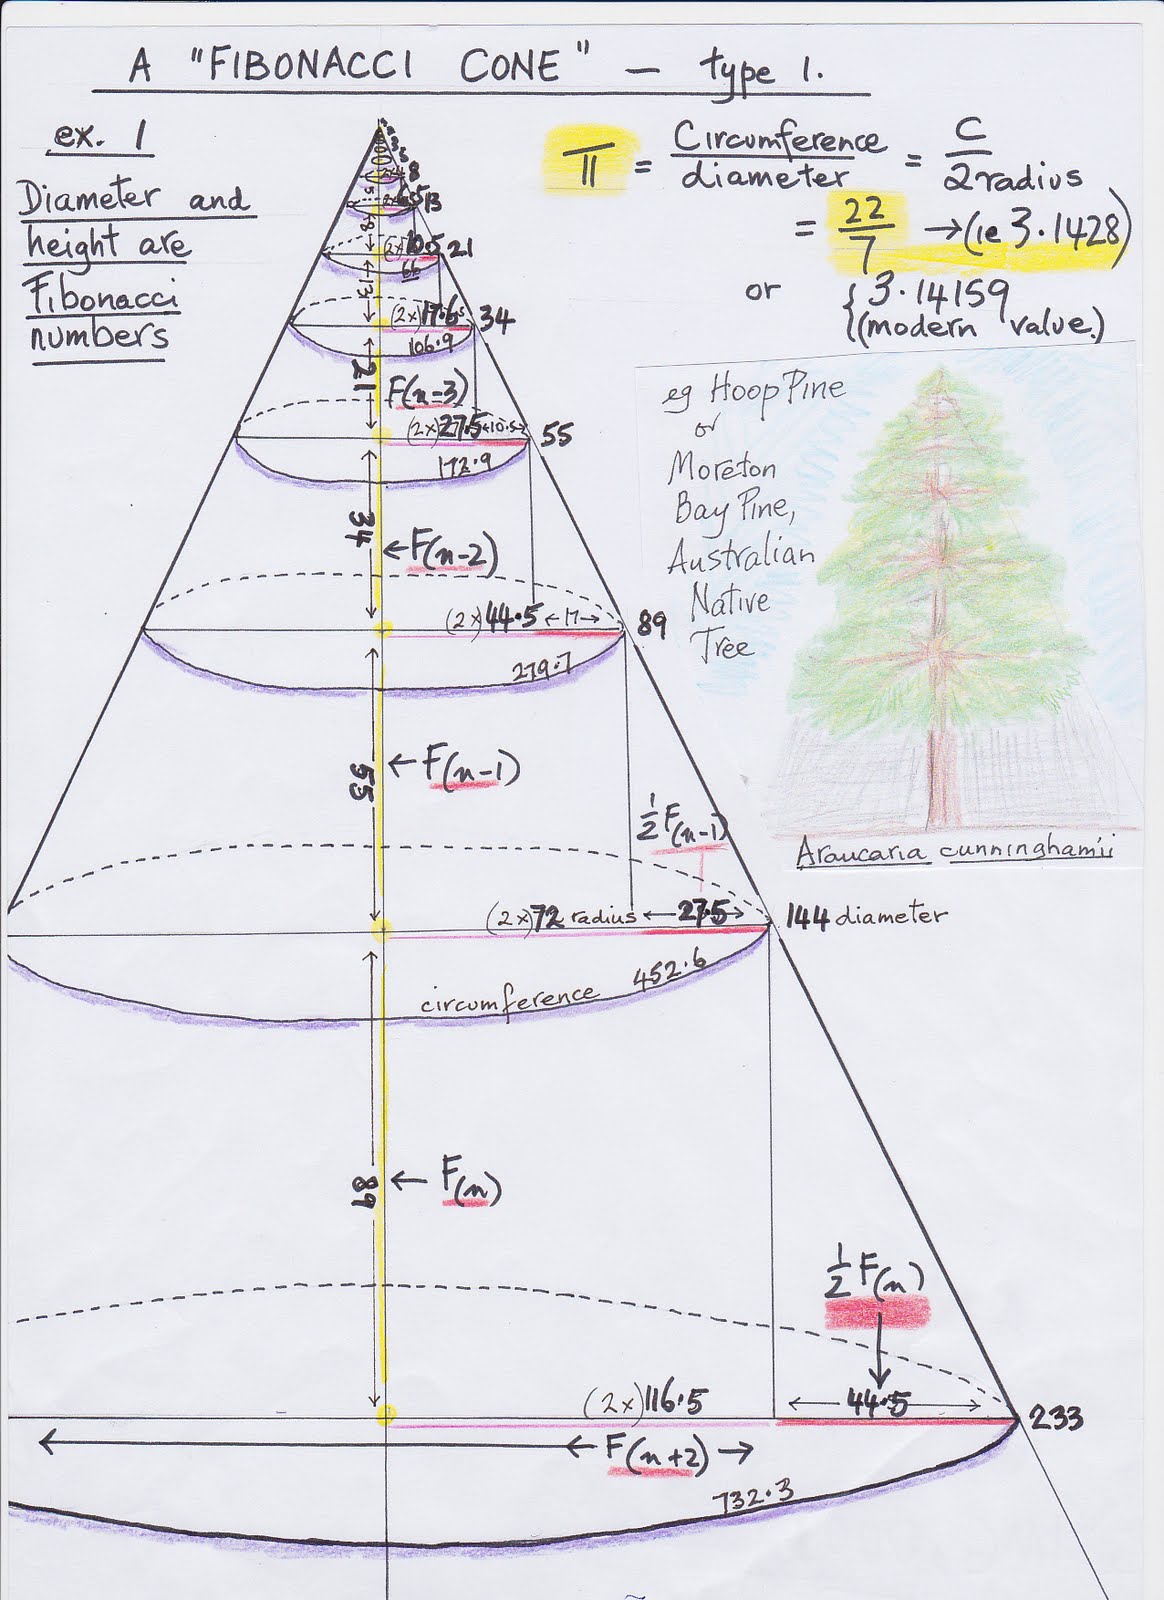 A "FIBONACCI CONE" — type 1.
ex. 1
Diameter and
height are
Fibonacci
numbers
π = Circumference / diameter = C / 2 radius
= 22/7 → (ie 3.1428)
or { 3.14159
{ (modern value.)
eg Hoop Pine
or
Moreton
Bay Pine,
Australian
Native
Tree
Araucaria cunninghamii
8
13
8
(2x) 10.5 21
66
13
(2x) 17.6 34
106.9
21
F(n-3)
(2x) 27.5 ←10.5→ 55
172.9
34
←F(n-2)
(2x) 44.5 ←17→ 89
279.7
55
←F(n-1)
½F(n-1)
(2x) 72 radius ←27.5→ 144 diameter
452.6
circumference
89
← F(n)
½F(n)
(2x) 116.5 ←44.5→ 233
← F(n+2) →
732.3